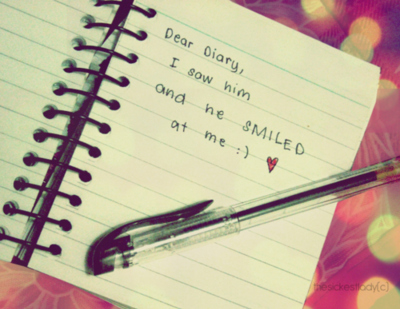 Dear Diary,
I saw him
and he SMILED
at me :)